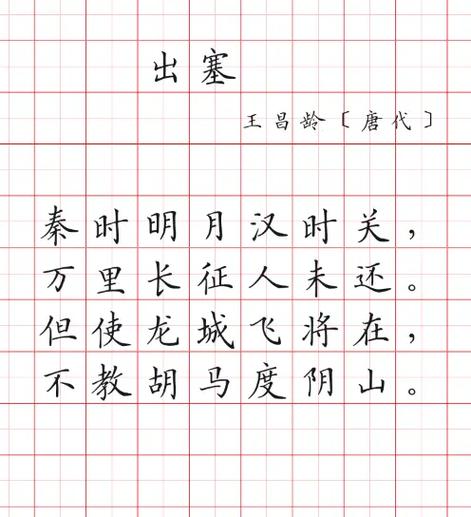 出塞
王昌龄〔唐代〕
秦时明月汉时关，
万里长征人未还。
但使龙城飞将在，
不教胡马度阴山。